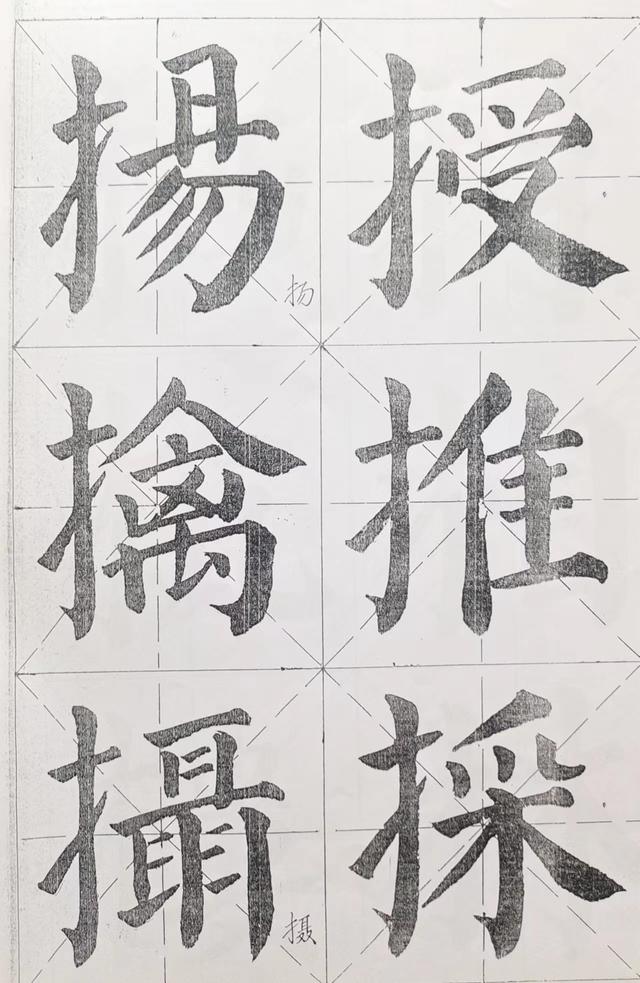 揚 扬 授
擒 推
攝 摄 採